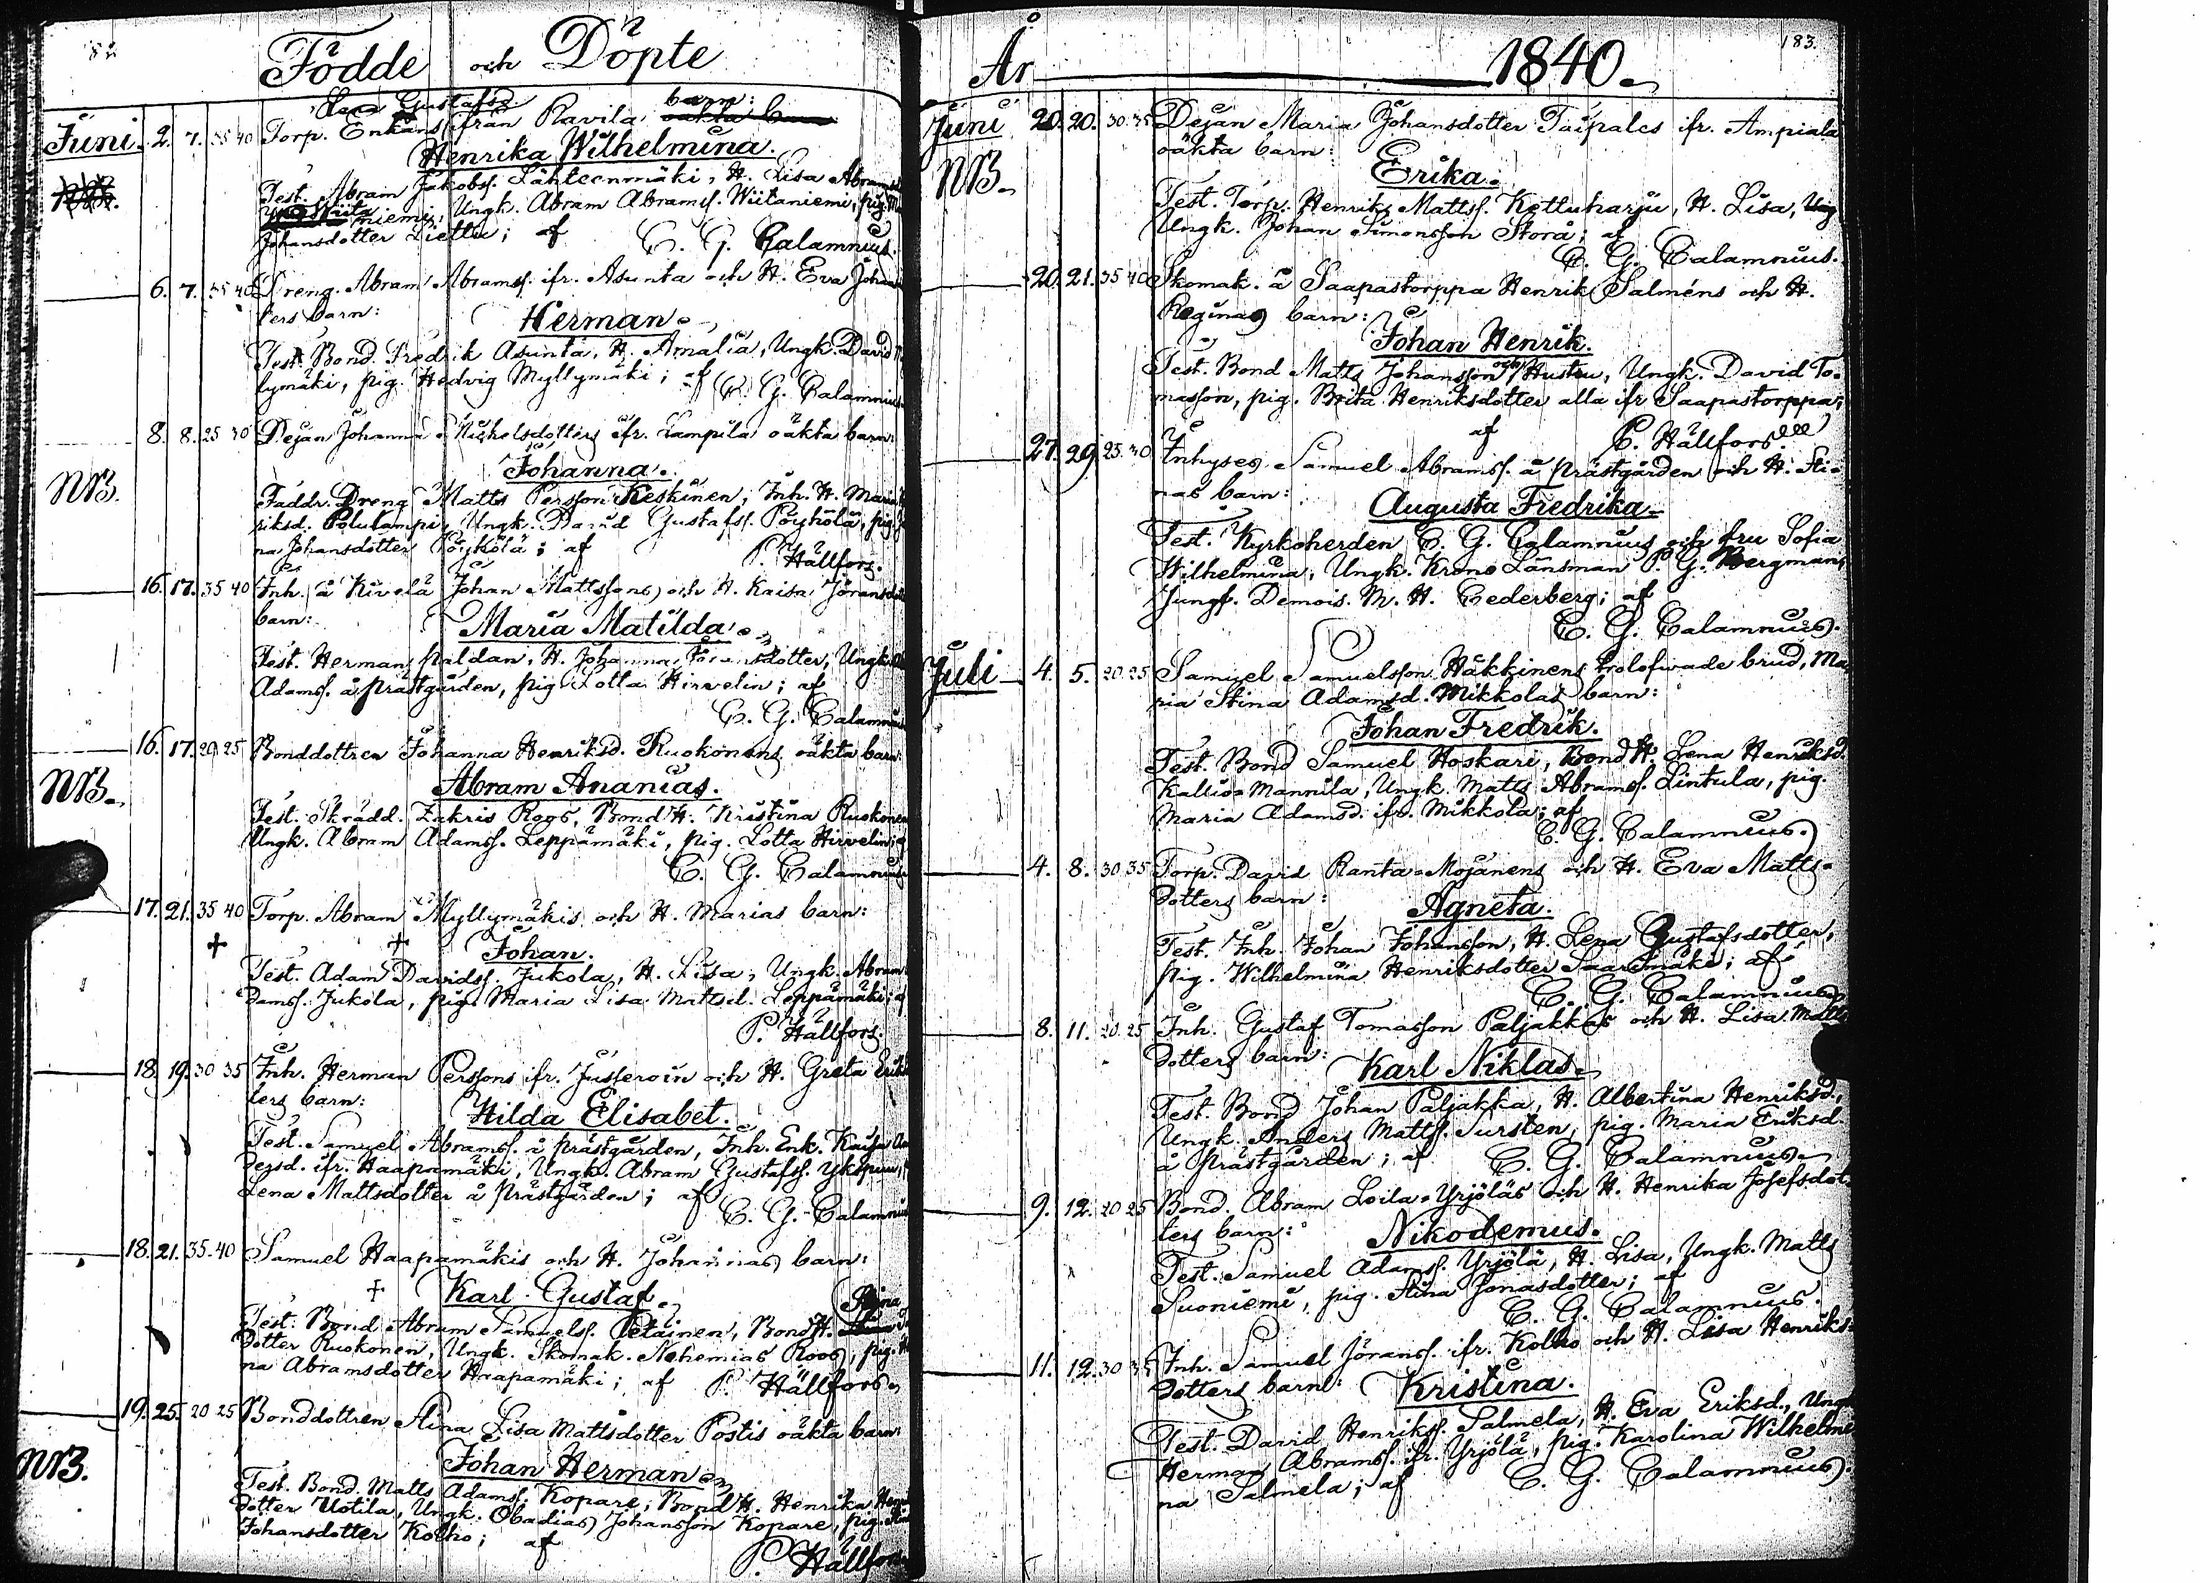 82
Födde och Döpte
Lena Gustafsd. barn:
Juni 2. 7. 35 40 Torp. Enkans från Ravila oäkta barn
Henrika Wilhelmina.
Test. Abram Jakobss. Lähteenmäki, H. Lisa Abrams
niemi, Ungk. Abram Abramss. Wiitaniemi, pig.
Johansdotter Lietta; af C. G. Calamnius.
6. 7. 35 40 Dreng. Abram Abramss. ifr. Asunta och H. Eva Johan
ters barn:
Herman.
Test. Bond. Fredrik Asunta, H. Amalia, Ungk. David
lymäki, pig. Hedvig Myllymäki; af C. G. Calamnius
8. 8. 25 30 Dejan Johanna Michelsdotters ifr. Lampila oäkta barn:
Johanna.
NB.
Faddr. Dreng Matts Persson Keskinen, Inh. H. Maria
riksd. Polulampi, Ungk. David Gustafss. Pöyhölä, pig.
na Johansdotter Pöyhölä; af P. Hällfors.
16. 17. 35 40 Inh. å Kivelä Johan Mattssons och H. Kaisa Jöransdot
barn:
Maria Matilda.
Test. Herman Paldan, H. Johanna Göransdotter, Ungk.
Adamss. å prästgården, pig. Lotta Hirvelin; af
C. G. Calamnius
16. 17. 20 25 Bonddottren Johanna Henriksd. Ruokonens oäkta barn:
Abram Ananias.
NB.
Test. Skrädd. Zakris Roos, Bond H. Kristina Ruokonen
Ungk. Abram Adamss. Leppämäki, pig. Lotta Hirvelin;
C. G. Calamnius
17. 21. 35 40 Torp. Abram Myllymäkis och H. Marias barn:
+ + Johan.
Test. Adam Davidss. Jukola, H. Lisa, Ungk. Abram
damss. Jukola, pig. Maria Lisa Mattsd. Leppämäki;
P. Hällfors.
18. 19. 30 35 Inh. Herman Perssons ifr. Jusseroin och H. Greta Eriks
ters barn:
Hilda Elisabet.
Test. Samuel Abramss. å prästgården, Inh. Enk. Kaisa
dersd. ifr. Haapamäki, Ungk. Abram Gustafss. Ykspuu,
Lena Mattsdotter å prästgården; af
C. G. Calamnius
18. 21. 35. 40 Samuel Haapamäkis och H. Johannas barn:
+ Karl Gustaf.
Stina
Test. Bond Abram Samuelss. Pelainen, Bond H.
dotter Ruokonen, Ungk. Skomak. Nehemias Roos, pig.
na Abramsdotter Haapamäki; af P. Hällfors.
19. 25. 20 25 Bonddottren Stina Lisa Mattsdotter Postis oäkta barn:
Johan Herman.
NB.
Test. Bond. Matts Adamss. Kopare, Bond H. Henrika
dotter Uotila, Ungk. Obadias Johansson Kopare, pig.
Johansdotter Kolho; af
P. Hällfors
183.
År 1840.
Juni 20. 20. 30 35 Dejan Maria Johansdotter Taipales ifr. Ampiala
oäkta barn:
NB. Erika.
Test. Torp. Henrik Mattss. Kettuharju, H. Lisa, Ung
Ungk. Johan Simonsson Storå; af
C. G. Calamnius.
20. 21. 35 40 Skomak. å Saapastorppa Henrik Salméns och H.
Reginas barn:
Johan Henrik.
Test. Bond Matts Johansson och Hustru, Ungk. David To-
masson, pig. Brita Henriksdotter alla ifr Saapastorppa;
af P. Hällfors
27. 29. 25. 30 Inhyses Samuel Abramss. å prästgården och H. Sti-
nas barn:
Augusta Fredrika.
Test. Kyrkoherden C. G. Calamnius och fru Sofia
Wilhelmina, Ungk. Krono Länsman P. G. Bergman,
Jungf. Demois. M. H. Cederberg; af
C. G. Calamnius.
Juli 4. 5. 20 25 Samuel Samuelsson Häkkinens trolofwade brud, Ma
ria Stina Adamsd. Mikkolas barn:
Johan Fredrik.
Test. Bond Samuel Hoskari, Bond H. Lena Henriksd.
Kallio-Mannila, Ungk. Matts Abramss. Lintula, pig.
Maria Adamsd. ifr. Mikkola; af
C. G. Calamnius.
4. 8. 30 35 Torp. David Ranta-Mojanens och H. Eva Matts-
dotters barn:
Agneta.
Test. Inh. Johan Johansson, H. Lena Gustafsdotter,
pig. Wilhelmina Henriksdotter Saarimäki; af
C. G. Calamnius
8. 11. 20 25 Inh. Gustaf Tomasson Paljakkas och H. Lisa Matts
dotters barn:
Karl Niklas.
Test. Bond Johan Paljakka, H. Albertina Henriksd.,
Ungk. Anders Mattss. Tursten, pig. Maria Eriksd.
å prästgården; af C. G. Calamnius.
9. 12. 20 25 Bond. Abram Loila-Yrjöläs och H. Henrika Josefsdot
ters barn:
Nikodemus.
Test. Samuel Adamss. Yrjölä, H. Lisa, Ungk. Matts
Suoniemi, pig. Stina Jonasdotter; af
C. G. Calamnius.
11. 12. 30 35 Inh. Samuel Jöranss. ifr. Kolho och H. Lisa Henriks-
dotters barn:
Kristina.
Test. David Henrikss. Salmela, H. Eva Eriksd., Ungk
Herman Abramss. ifr. Yrjölä, pig. Karolina Wilhelmi
na Salmela; af C. G. Calamnius.